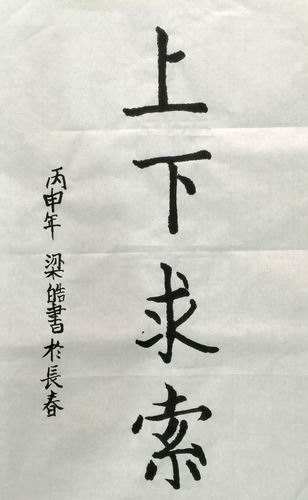 上下求索
丙申年 梁皓書 於長春